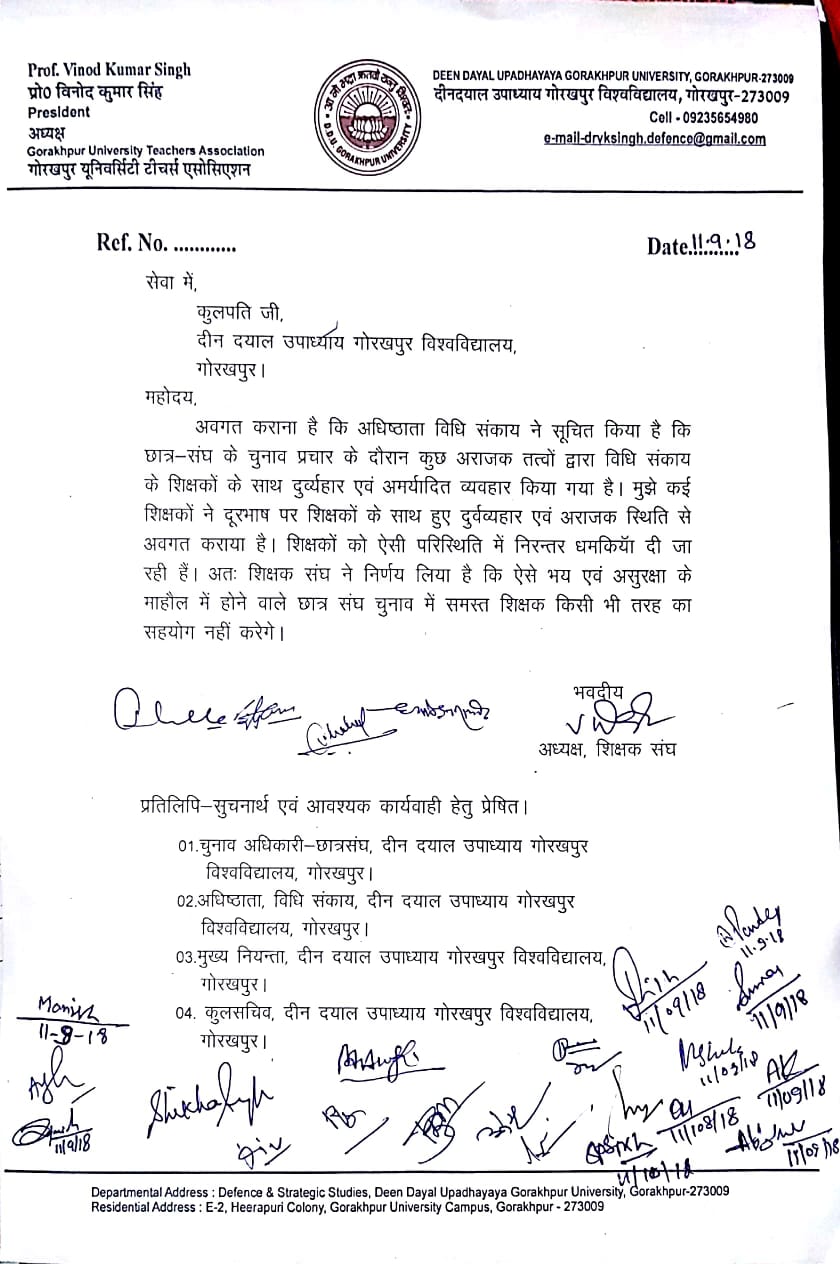 Prof. Vinod Kumar Singh
प्रो0 विनोद कुमार सिंह
President
अध्यक्ष
Gorakhpur University Teachers Association
गोरखपुर यूनिवर्सिटी टीचर्स एसोसिएशन
D.D.U. GORAKHPUR UNIVERSITY
DEEN DAYAL UPADHAYAYA GORAKHPUR UNIVERSITY, GORAKHPUR-273009
दीनदयाल उपाध्याय गोरखपुर विश्वविद्यालय, गोरखपुर-273009
Cell - 09235654980
e-mail-drvksingh.defence@gmail.com
Ref. No. ............
Date 11.9.18
सेवा में,
कुलपति जी,
दीन दयाल उपार्ध्याय गोरखपुर विश्वविद्यालय,
गोरखपुर।
महोदय,
अवगत कराना है कि अधिष्ठाता विधि संकाय ने सूचित किया है कि
छात्र–संघ के चुनाव प्रचार के दौरान कुछ अराजक तत्वों द्वारा विधि संकाय
के शिक्षकों के साथ दुर्व्यहार एवं अमर्यादित व्यवहार किया गया है। मुझे कई
शिक्षकों ने दूरभाष पर शिक्षकों के साथ हुए दुर्वव्यहार एवं अराजक स्थिति से
अवगत कराया है। शिक्षकों को ऐसी परिस्थिति में निरन्तर धमकियॉ दी जा
रही हैं। अतः शिक्षक संघ ने निर्णय लिया है कि ऐसे भय एवं असुरक्षा के
माहौल में होने वाले छात्र संघ चुनाव में समस्त शिक्षक किसी भी तरह का
सहयोग नहीं करेगे।
भवदीय
अध्यक्ष, शिक्षक संघ
प्रतिलिपि–सुचनार्थ एवं आवश्यक कार्यवाही हेतु प्रेषित।
01.चुनाव अधिकारी–छात्रसंघ, दीन दयाल उपाध्याय गोरखपुर
विश्वविद्यालय, गोरखपुर।
02.अधिष्ठाता, विधि संकाय, दीन दयाल उपाध्याय गोरखपुर
विश्वविद्यालय, गोरखपुर।
03.मुख्य नियन्ता, दीन दयाल उपाध्याय गोरखपुर विश्वविद्यालय,
गोरखपुर।
04. कुलसचिव, दीन दयाल उपाध्याय गोरखपुर विश्वविद्यालय,
गोरखपुर।
Pandey
11.9.18
11/09/18
11/9/18
Manish
11-9-18
11/09/18
AK
11/09/18
Shikha Singh
11/9/18
11/09/18
Departmental Address : Defence & Strategic Studies, Deen Dayal Upadhayaya Gorakhpur University, Gorakhpur-273009
Residential Address : E-2, Heerapuri Colony, Gorakhpur University Campus, Gorakhpur - 273009